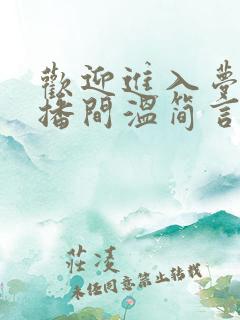 歡迎進入夢
播間溫簡言
莊凌
未經同意禁止轉載